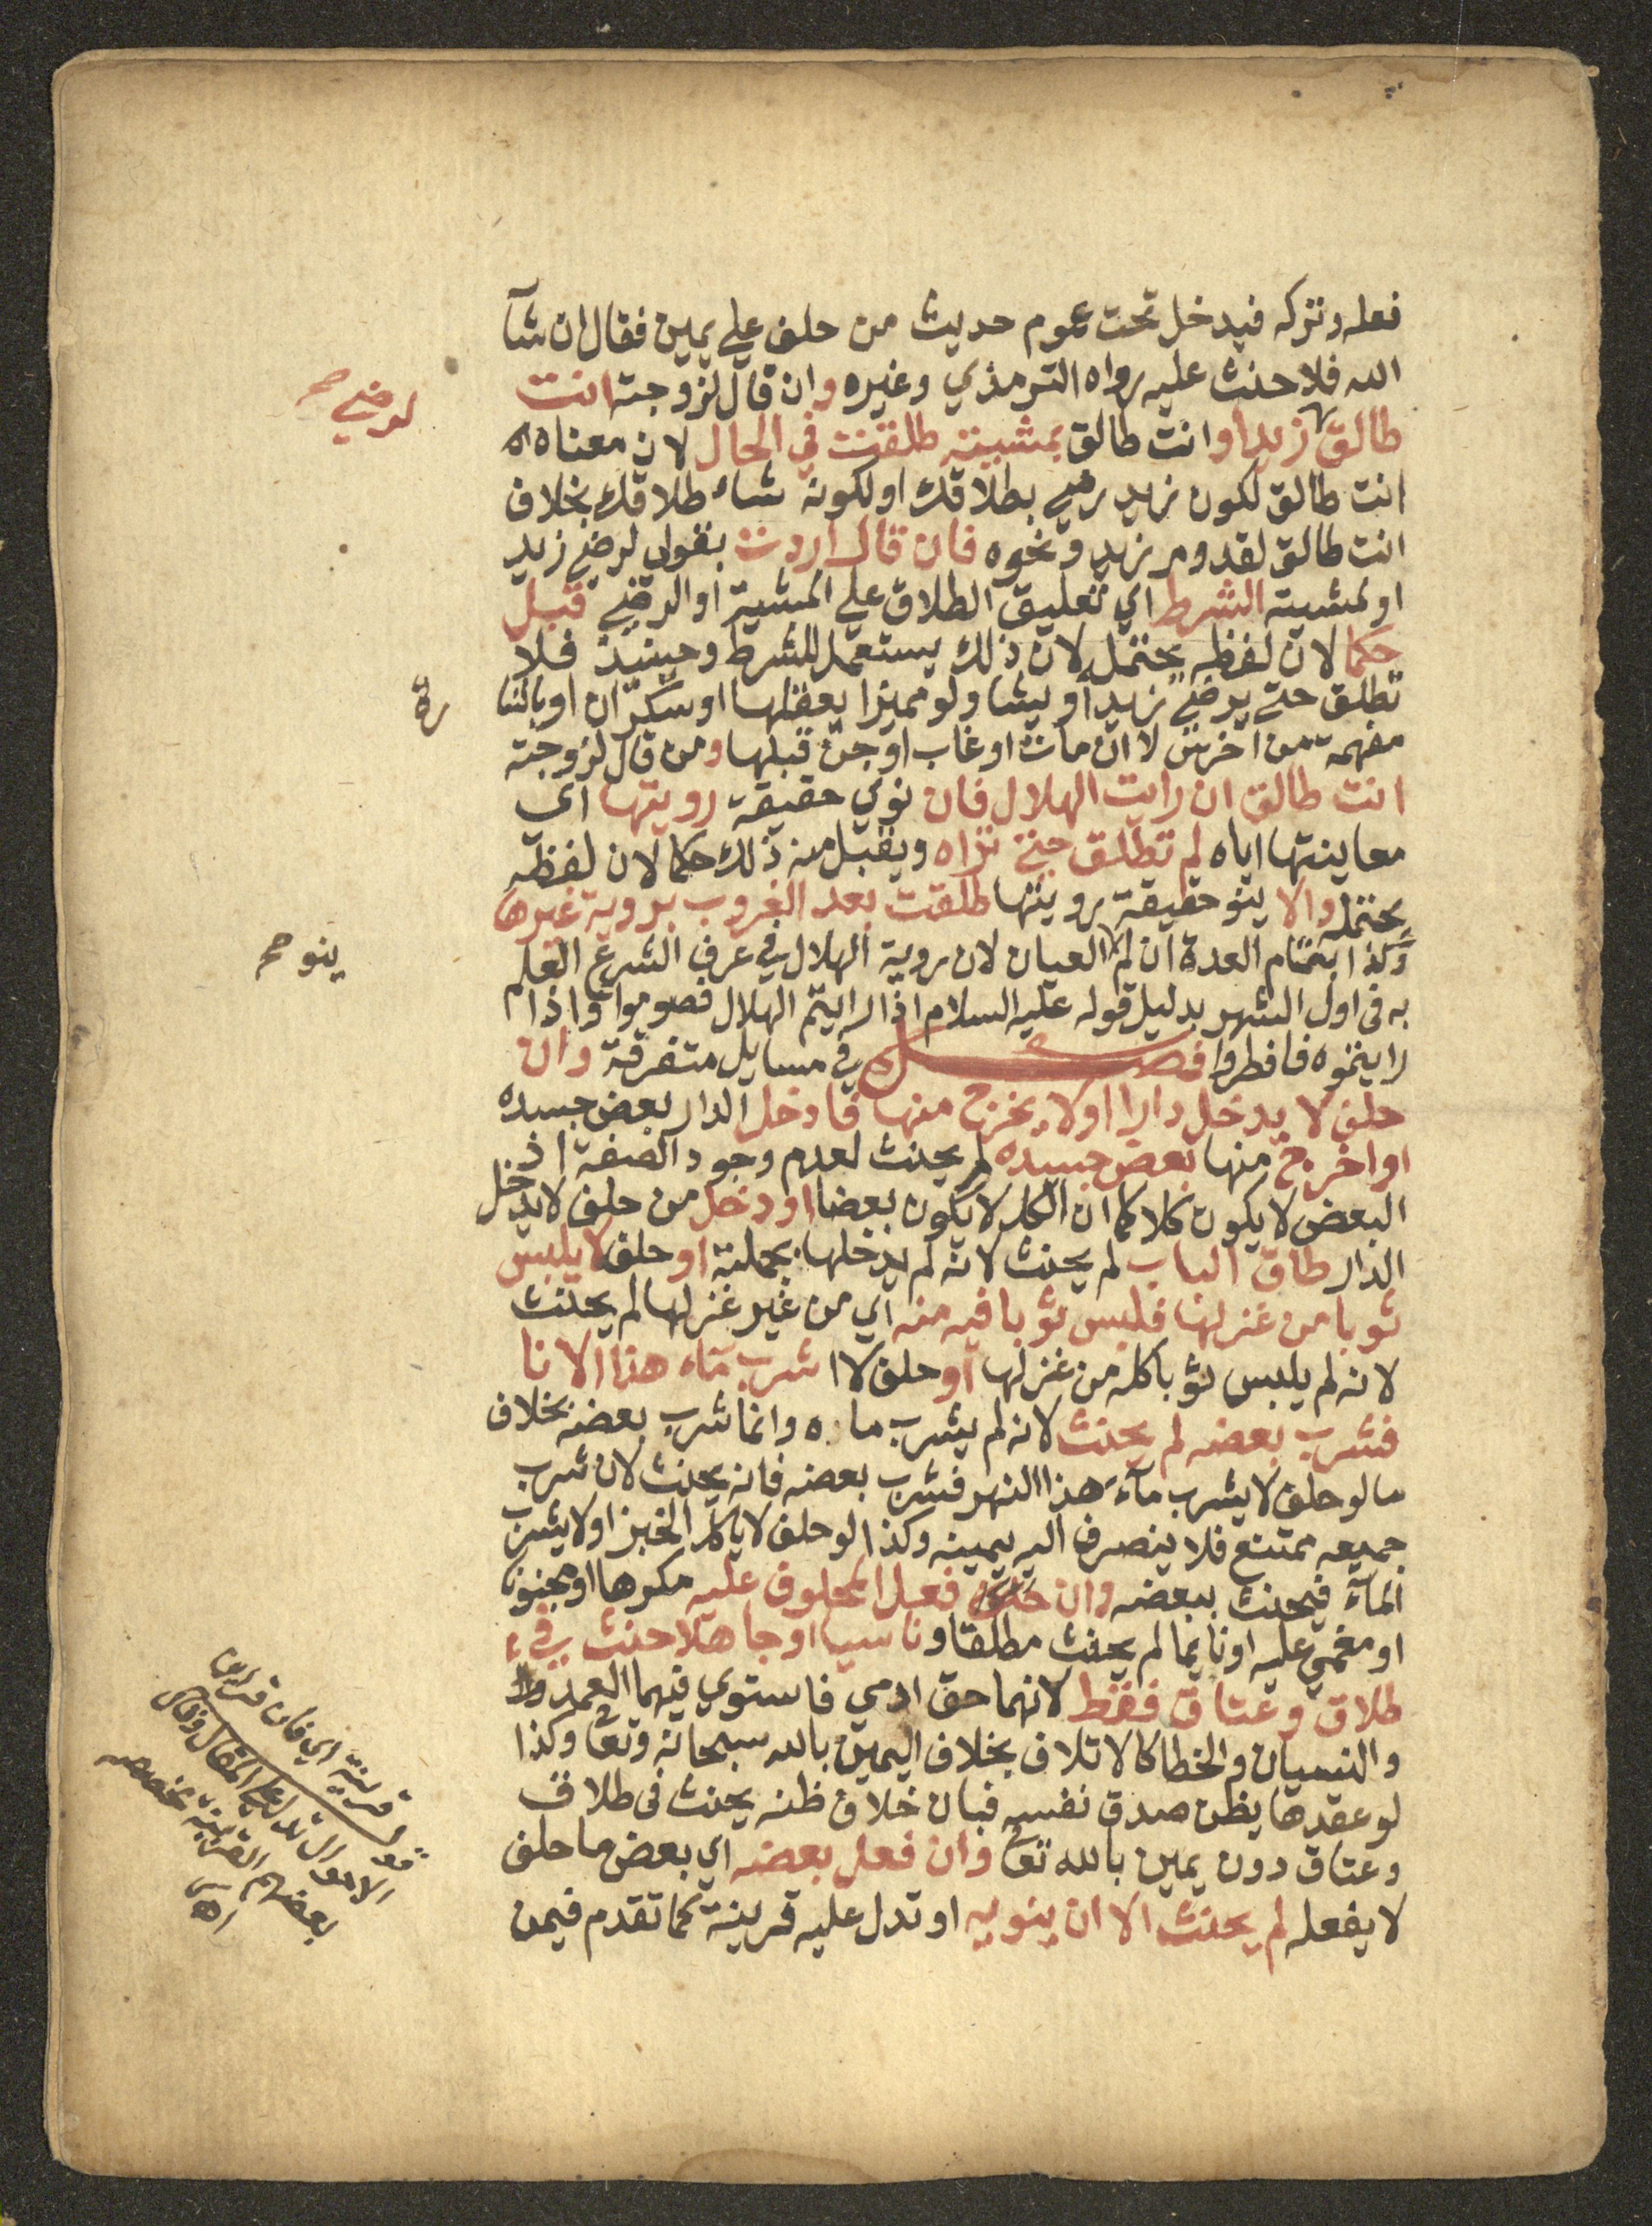 فعله وتركه فيدخل تحت عموم حديث من حلف علي يمين فقال ان شآ
الله فلا حنث عليه رواه الترمذي وغيره وان قال لزوجته انت
طالق زيد او انت طالق بمشيئته طلقت في الحال لان معناه
انت طالق لكون زيد رضي بطلاقك او لكونه شاء طلاقك بخلاف
انت طالق لقدوم زيد ونحوه فان قال اردت بقولي لرضي زيد
او لمشيته الشرط اي تعليق الطلاق علي المشية او الرضي قبل
حكما لان لفظه يحتمله لان ذلك يستعمل للشرط وحينيذ فلا
تطلق حتي يرضي زيد او يشا ولو مميزا يعقلها او سكران او باشا
مفهمة من اخرس لا ان مات او غاب او جن قبلها ومن قال لزوجته
انت طالق ان رايت الهلال فان نوي حقيقة رويتها اي
معاينتها اياه لم تطلق حتي تراه ويقبل منه ذلك حكما لان لفظه
يحتمله والا ينو حقيقة رويتها طلقت بعد الغروب بروية غيرها
وكذا بتمام العدة ان لم العيان لان روية الهلال في عرف الشرع العلم
به فى اول الشهر بدليل قوله عليه السلام اذا رايتم الهلال فصوموا واذا
رايتموه فافطروا فصل في مسايل متفرقة وان
حلف لا يدخل دارا او لا يخرج منها فادخل الدار بعض جسده
او اخرج منها بعض جسده لم يحنث لعدم وجود الصفة اذ
البعض لا يكون كلا كما ان الكل لا يكون بعضا او دخل من حلف لا يدخل
الدار طاق الباب لم يحنث لانه لم يدخلها بجملته او حلف لا يلبس
ثوبا من غزلها فلبس ثوبا فيه منه اي من غير غزلها لم يحنث
لانه لم يلبس ثوبا كله من غزلها او حلف لا اشرب مآء هذا الانا
فشرب بعضه لم يحنث لانه لم يشرب ماءه وانما شرب بعضه بخلاف
ما لو حلف لا يشرب مآء هذا النهر فشرب بعضه فانه يحنث لان شرب
جميعه ممتنع فلا ينصرف اليه يمينه وكذا لو حلف لا ياكل الخبز او لا يشرب
المآء فيحنث ببعضه وان فعل المحلوف عليه مكرها او مجنونا
او مغمي عليه او نايما لم يحنث مطلقا وناسيا او جاهلا حنث في
طلاق وعتاق فقط لانهما حق ادمي فاستوي فيهما العمد
والنسيان والخطا كالاتلاف بخلاف اليمين بالله سبحانه وتعا وكذا
لو عقدها يظن صدق نفسه فبان خلاف ظنه يحنث فى طلاق
وعتاق دون يمين بالله تعا وان فعل بعضه اي بعض ما حلف
لا يفعله لم يحنث الا ان ينويه او تدل عليه قرينة كما تقدم فيمن
لرضي صح
رة
ينو صح
قوله قرينة اي فان قراين
الاحوال تدل علي المقال وقال
بعضهم القرينة مخصصه
اهـ